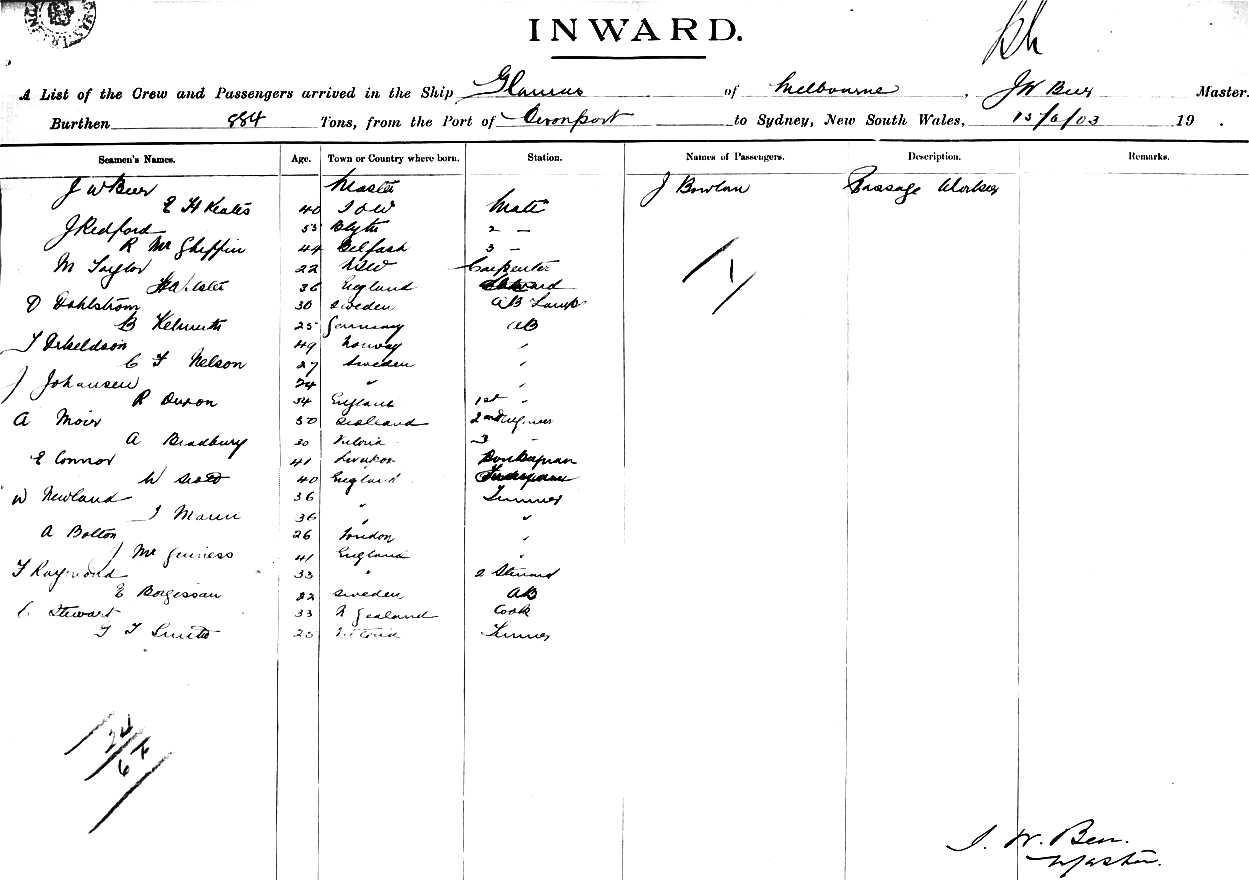 INWARD.
A List of the Crew and Passengers arrived in the Ship Glaucus of Melbourne, J W Beer Master.
Burthen 884 Tons, from the Port of Devonport to Sydney, New South Wales, 13/6/03 19 .
Seamen's Names. Age. Town or Country where born. Station. Names of Passengers. Description. Remarks.
J W Beer Master J Bowlan Passage Worker
E H Keates 40 I O W Mate
J Redford 53 Blyth 2 -
R Mc 44 Belfast 3 -
M Taylor 22 NSW Carpenter
36 England
D Dahlstrom 30 Sweden AB Lamps
B 25 Germany AB
T 49 Norway "
C F Nelson 27 Sweden "
J Johansen 24 " "
R Duxon 34 England 1st "
A Moir 30 Scotland 2nd Engineer
A Bradbury 30 Victoria 3 "
E Connor 41 Donkeyman
W 40 England
W Newland 36 " Trimmer
J Mann 36 " "
A Bolton 26 London "
J Mc Guiness 41 England "
F Raymond 33 " 2 Steward
E Borgessan 22 Sweden AB
C Stewart 33 N Zealand Cook
F T Smith 23 Victoria Trimmer
1
J. W. Beer.
Master.